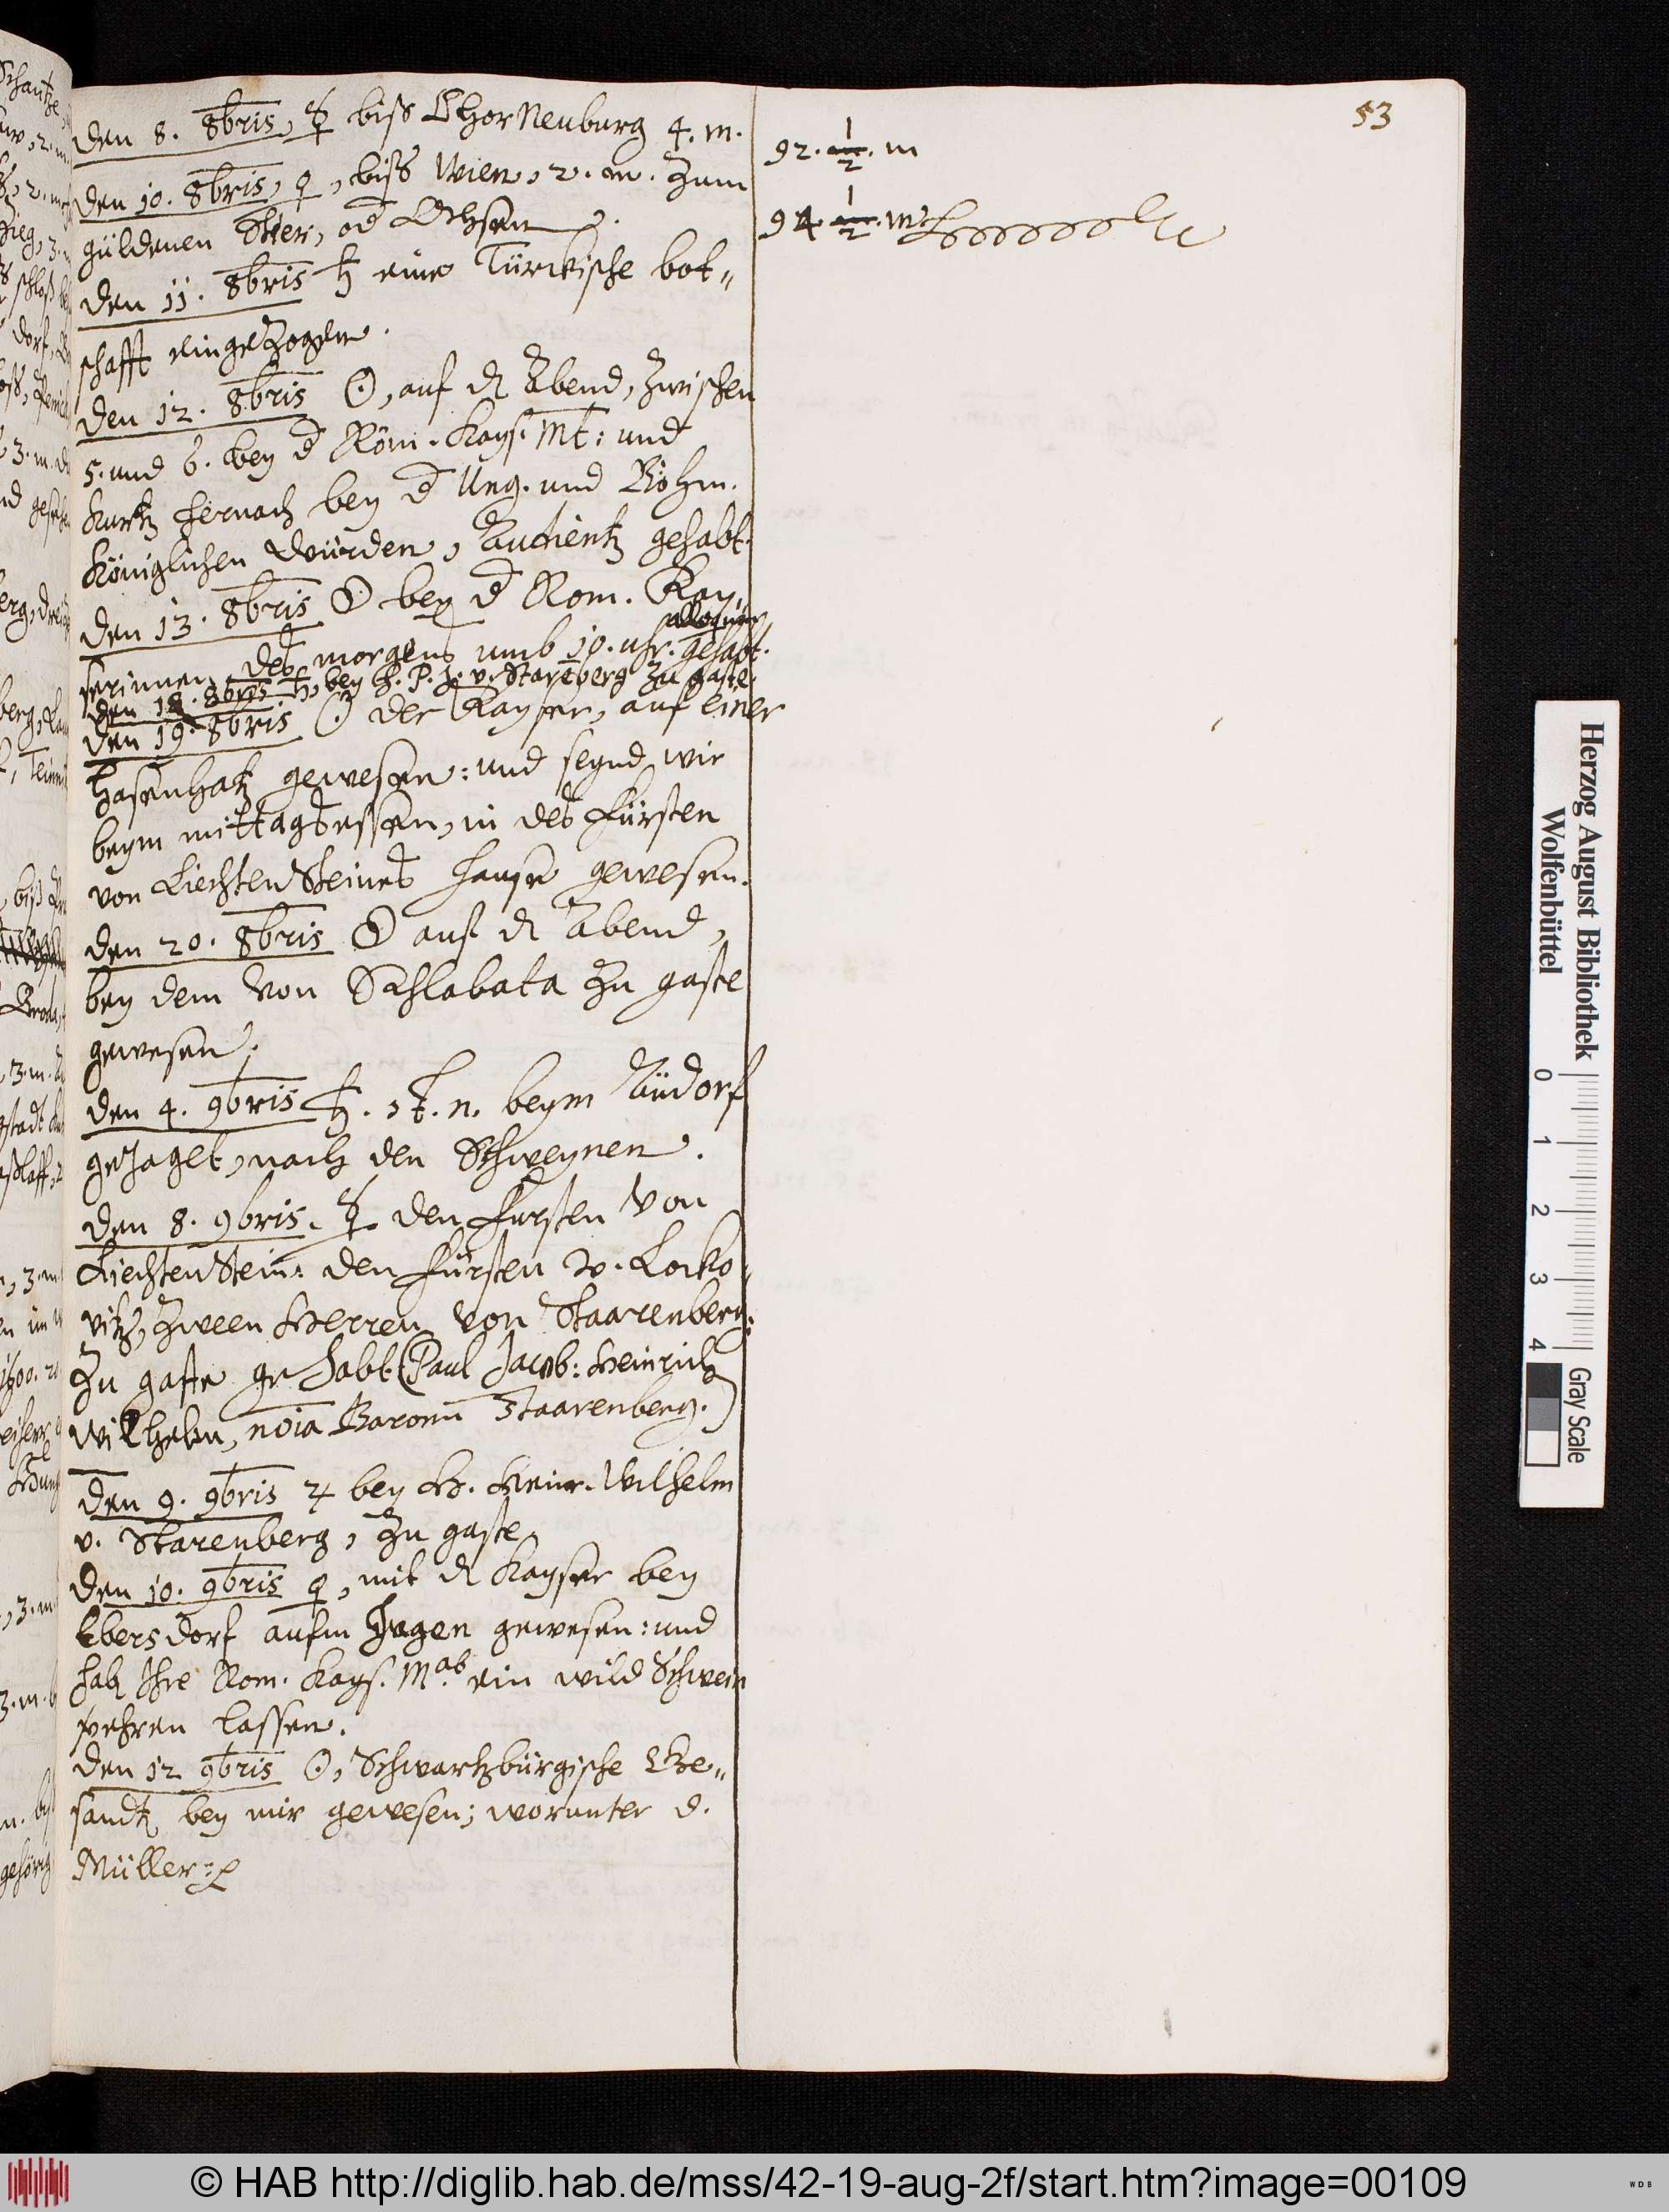 53
den 8. 8bris, ☿ biß ChorNeuburg 4. m.
92. 1/2. m
den 10. 8bris, ♀, biß Wien, 2. m. zum
güldenen Stier, od Ochsen.
94. 1/2. m
den 11. 8bris ♄ eine Türckische bot„
schafft eingezogen.
den 12. 8bris ☉, auf den Abend, zwischen
5. und 6. bey d Röm. Kays. Mt: und
kurtz hernach bey d Ung. und Böhm.
Königlichen Würden, Audientz gehabt.
den 13. 8bris ☽ bey d Rom. Kay„
serinnen, des morgens umb 10. uhr. gehabt.
den 18. 8bris ♄, bey H. P. J. v. Starēberg zu gaste.
den 19. 8bris ☉ der Kayser, auf einer
Hasenhatz gewesen: und seynd wir
beym mittagsessen, in des Fürsten
von LiechtenSteines hause gewesen.
den 20. 8bris ☽ auf den Abend,
bey dem von Schlabata zu gaste
gewesen.
den 4. 9bris ♄. st. n. beym
geJaget, nach den Schweynen.
den 8. 9bris. ☿ den Fursten von
LiechtenStein: den Fürsten v. Locko„
vitz, zween Herren von Staarenberg:
zu gaste gehabt (Paul Jacob: Heinrich
Wilhelm, nōia Baronū Staarenberg.)
den 9. 9bris ♃ bey H. Heinr. Wilhelm
v. Starenberg, zu gaste
den 10. 9bris ♀, mit dem Kayser bey
Ebersdorf aufm Jagen gewesen: und
hab Ihre Rom. Kays. M. ein wild Schwein
lassen.
den 12 9bris ☉, Schwartzbürgische Ge„
sandten bey mir gewesen; worunter D.
Müller
Herzog August Bibliothek
Wolfenbüttel
0 1 2 3 4
Gray Scale
© HAB http://diglib.hab.de/mss/42-19-aug-2f/start.htm?image=00109
WDB